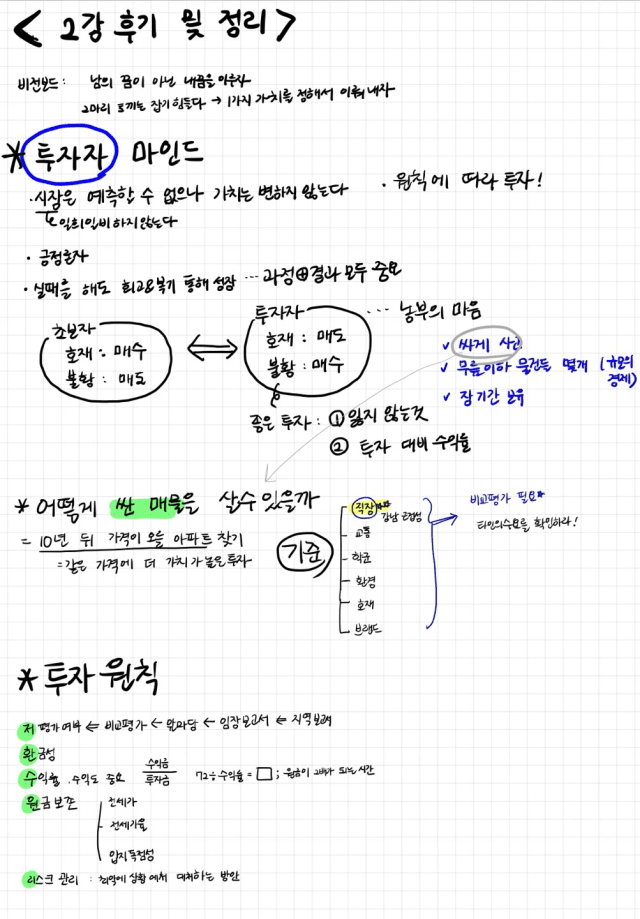 < 2강 후기 및 정리 >
비전보드 : 남의 꿈이 아닌 내꿈을 이루자
2마리 토끼는 잡기 힘들다 → 1가지 가치를 정해서 이뤄내자
* 투자자 마인드
· 시장은 예측할 수 없으나 가치는 변하지 않는다
· 원칙에 따라 투자!
일희일비 하지않는다
· 긍정혼자
· 실패를 해도 회고&복기 통해 성장 … 과정⊕결과 모두 중요
초보자
호재 : 매수
불황 : 매도
투자자
호재 : 매도
불황 : 매수
… 농부의 마음
✓ 싸게 사서
✓ 무릎이하 물건들 몇개 (규모의 경제)
✓ 장기간 보유
좋은 투자 : ① 잃지 않는것
② 투자 대비 수익률
* 어떻게 싼 매물을 살수있을까
= 10년 뒤 가격이 오를 아파트 찾기
= 같은 가격에 더 가치가 높은 투자
기준
직장 강남 근접성
교통
학군
환경
호재
브랜드
비교평가 필요
타인의수요를 확인하라!
* 투자 원칙
저평가여부 ⇐ 비교평가 ← 앞마당 ← 임장보고서 ← 지역분석
환금성
수익률 . 수익도 중요 수익금 / 투자금 72÷수익률 = □ ; 원금이 2배가 되는 시간
원금보존
전세가
전세가율
입지 독점성
리스크 관리 : 최악에 상황에서 대처하는 방안